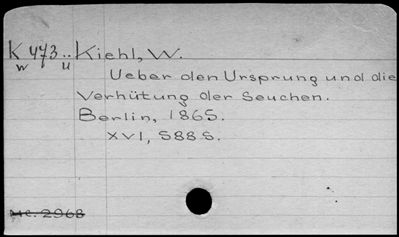 K 473.. Kiehl, W.
w u
Ueber den Ursprung und die
Verhütung der Seuchen.
Berlin, 1865.
XVI, 588 S.
Mc. 2968